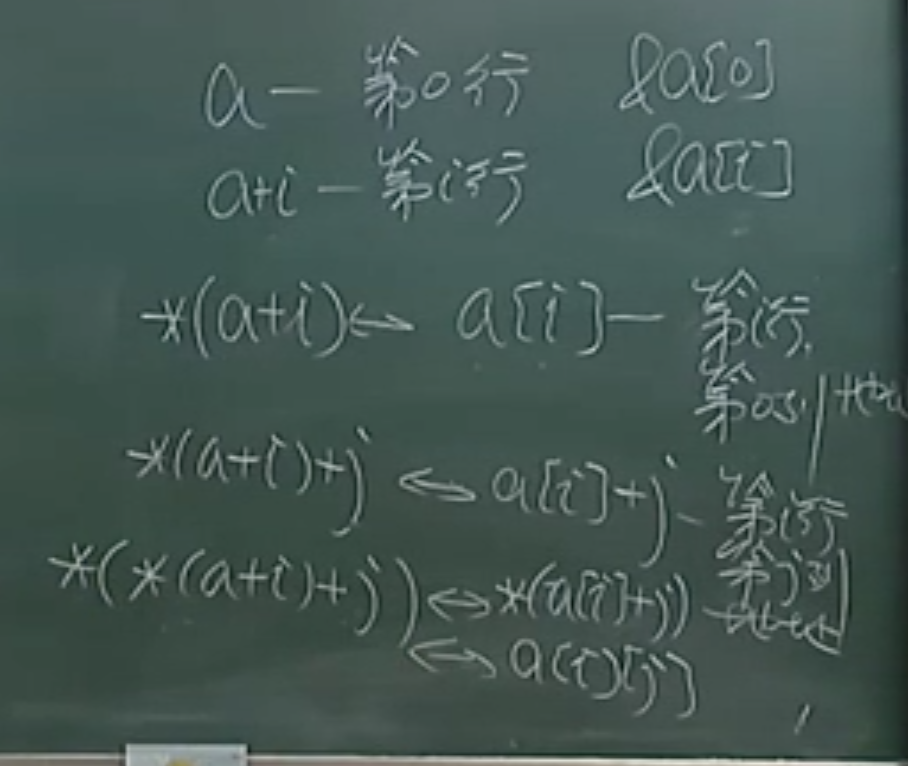 a — 第0行 &a[0]
a+i — 第i行 &a[i]
*(a+i) ↔ a[i] — 第i行,
第0列地址
*(a+i)+j ↔ a[i]+j — 第i行
第j列
*(*(a+i)+j) ↔ *(a[i]+j)
↔ a[i][j]